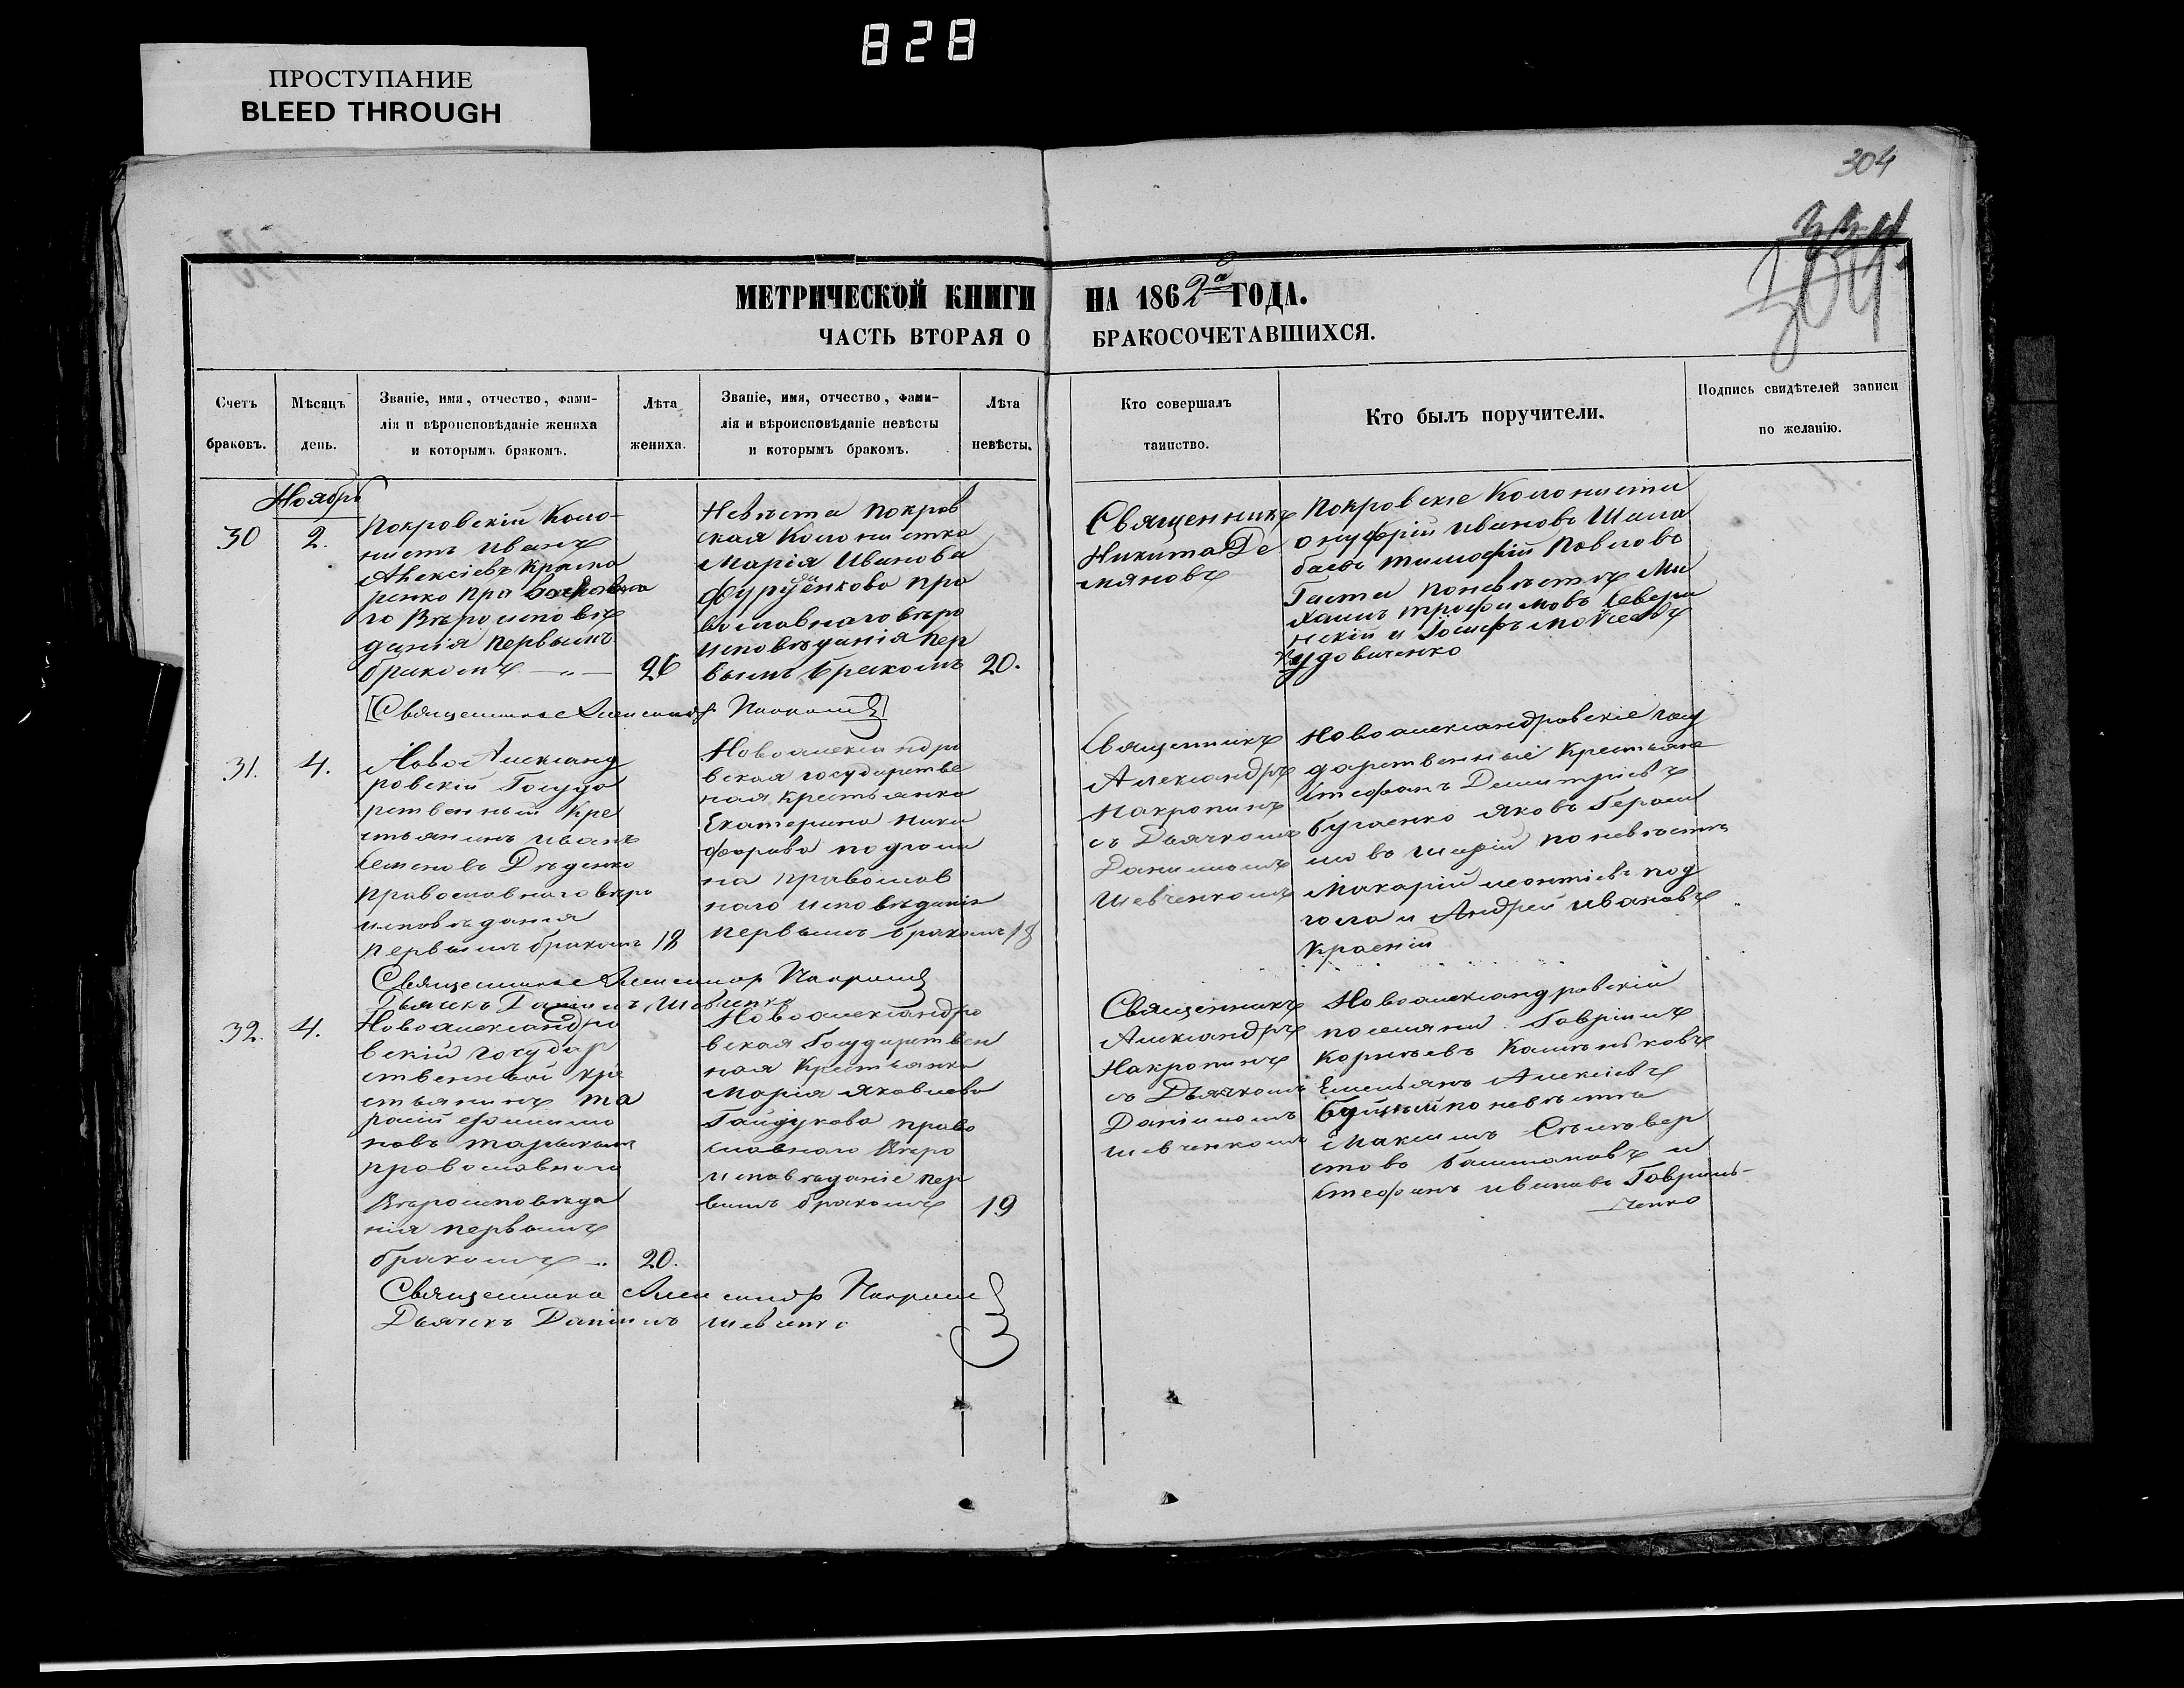 828
ПРОСТУПАНИЕ
BLEED THROUGH
304
334
304
МЕТРИЧЕСКОЙ КНИГИ НА 1862го ГОДА.
ЧАСТЬ ВТОРАЯ О БРАКОСОЧЕТАВШИХСЯ.
Счетъ
браковъ.
Мѣсяцъ
день.
Званіе, имя, отчество, фами-
лія и вѣроисповѣданіе жениха
и которымъ бракомъ.
Лѣта
жениха.
Званіе, имя, отчество, фами-
лія и вѣроисповѣданіе невѣсты
и которымъ бракомъ.
Лѣта
невѣсты.
Кто совершалъ
таинство.
Кто былъ поручители.
Подпись свидѣтелей записи
по желанію.
Ноябрь
30
2.
Покровскій Коло-
нистъ Иванъ
Алексіевъ
ренко
го Вѣроисповѣ
данія первымъ
бракомъ
26
Невѣста Покров
ская Колонистка
Марія Иванова
про
вославнаго вѣро
исповѣданія пер
вымъ бракомъ
20.
Священникъ
Никита Де
мяновъ
Покровскіе Колонисты
Онуфрій Ивановъ Шала
баевъ Тимофій Павловъ
Гаста поневѣстѣ Ми
хаилъ Трофимовъ Севери
нскій и Іосифъ Моисеевъ
Удовиченко
Священникъ Александр
31.
4.
Ново Александ
ровскій Госуда
рственный Кре
стьянинъ Иванъ
Семеновъ Дѣденко
православнаго вѣро
исповѣданія
первымъ бракомъ
18
Новоалександро
вская государстве
ная крестьянка
Екатерина Ники
форова подголи
на православ
наго исповѣданія
первымъ бракомъ
18
Священникъ
Александръ
Накропинъ
съ Дьячкомъ
Даниломъ
Шевченкомъ
Новоалександровскіе госу
дарственные Крестьяне
Стефанъ Димитріевъ
Бугаенко Яковъ Гераси
мовъ поневѣстѣ
Макарій Леонтіевъ под
гола и Андрей Ивановъ
Красній
Священникъ Александр
Дьячокъ Даніилъ Шевченко
32.
4.
Новоалександро
вскій государ
ственный кре
стьянинъ Та
расій
новъ
православного
Вѣроисповѣда
нія первымъ
бракомъ
20.
Новоалександро
вская Государствен
ная Крестьянка
Марія Яковлева
Гайдукова право
славного Вѣро
исповѣданіе пер
вымъ бракомъ
19
Священникъ
Александръ
Накропинъ
съ Дьячкомъ
Даніиломъ
Шевченкомъ
Новоалександровскій
поселяни Гавріилъ
Корнѣевъ
Емельянъ Алексіевъ
поневѣстѣ
Максимъ
стовъ Башмаковъ и
Стефанъ Ивановъ Гавриль-
ченко
Священника Александр
Дьячекъ Даніилъ Шевченко